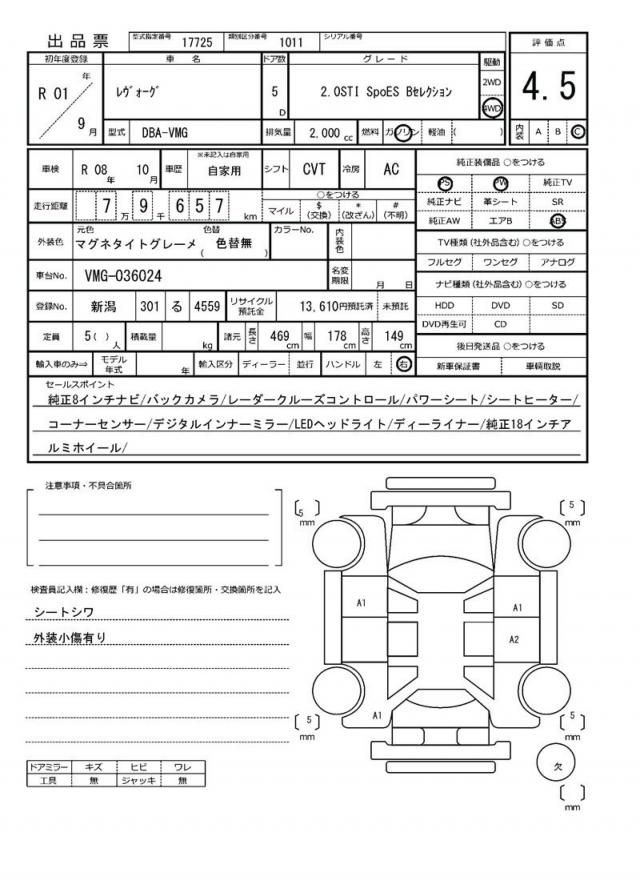 出品票 型式指定番号 17725 類別区分番号 1011 シリアル番号
初年度登録 車名 ドア数 グレード 駆動 評価点
R 01 年 9月 ﾚｳﾞｫｰｸﾞ 5 D 2.0STI SpoES Bｾﾚｸｼｮﾝ 2WD 4WD 4.5
型式 DBA-VMG 排気量 2,000 cc 燃料 ガソリン 軽油 ( ) 内装 A B C
車検 R 08 年 10 月 車歴 ※未記入は自家用 自家用 シフト CVT 冷房 AC 純正装備品 ○をつける
PS PW 純正TV
走行距離 7 万 9 千 6 5 7 km ○をつける マイル $ (交換) * (改ざん) # (不明) 純正ナビ 革シート SR
純正AW エアB ABS
外装色 元色 マグネタイトグレーメ 色替 ( 色替無 ) カラーNo. 内装色 TV種類 (社外品含む) ○をつける
フルセグ ワンセグ アナログ
車台No. VMG-036024 名変期限 月 日 ナビ種類 (社外品含む) ○をつける
登録No. 新潟 301 る 4559 リサイクル預託金 13,610円預託済 未預託 HDD DVD SD
DVD再生可 CD
定員 5( ) 人 積載量 kg 諸元 長さ 469 cm 幅 178 cm 高さ 149 cm 後日発送品 ○をつける
輸入車のみ⇒ モデル年式 年 輸入区分 ディーラー 並行 ハンドル 左 右 新車保証書 車輌取説
セールスポイント
純正8インチナビ/バックカメラ/レーダークルーズコントロール/パワーシート/シートヒーター/
コーナーセンサー/デジタルインナーミラー/LEDヘッドライト/ディーライナー/純正18インチア
ルミホイール/
注意事項・不具合箇所
検査員記入欄：修復歴「有」の場合は修復箇所・交換箇所を記入
シートシワ
外装小傷有り
ドアミラー キズ ヒビ ワレ
工具 無 ジャッキ 無
5 mm 5 mm
A1 A1
A2
A1
5 mm 5 mm
欠
mm